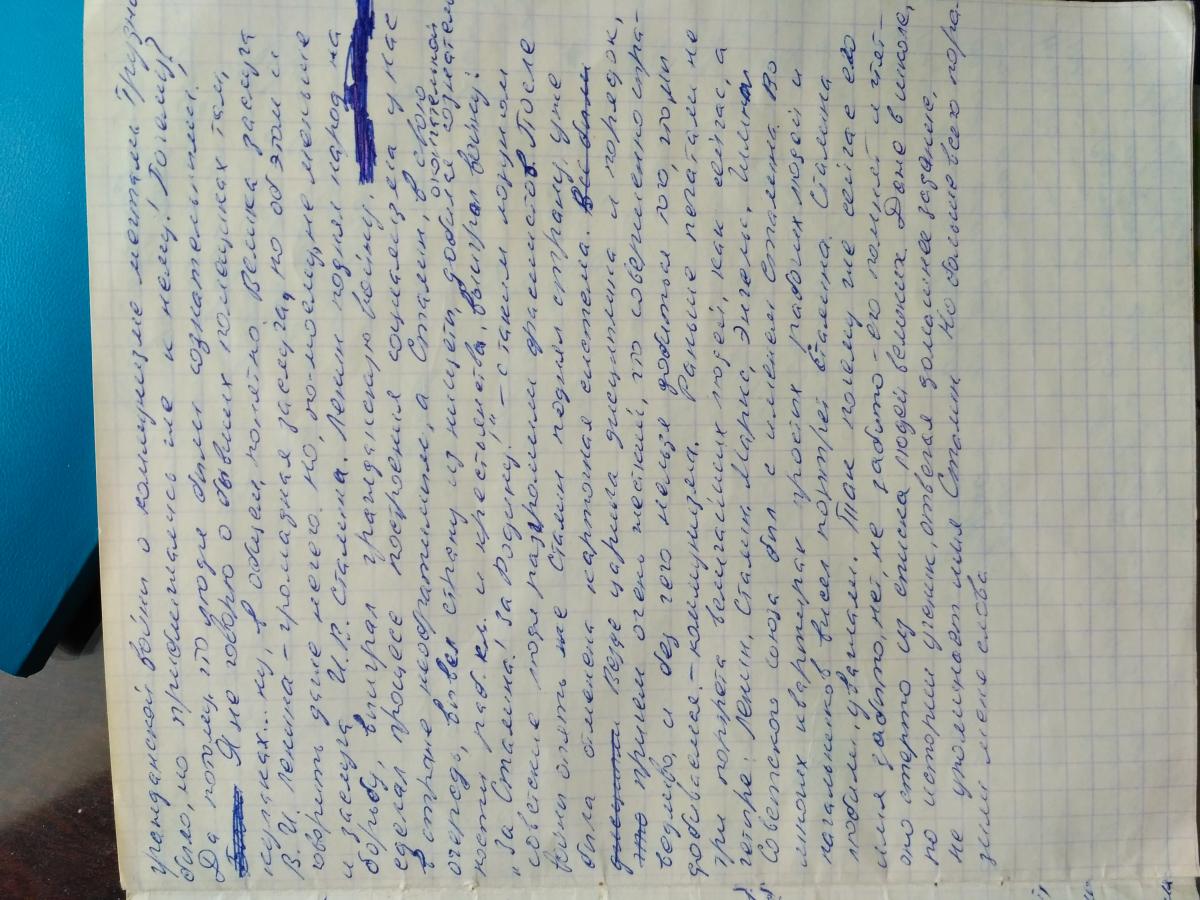 гражданской войны о коммунизме мечтали. Трудно
было, но приближались же к нему! Почему?
Да потому, что люди были сознательными!
Я не говорю о бывших помещиках там,
кулаках... ну, в общем, понятно. Велика заслуга
В. И. Ленина – громадная заслуга, но об этом и
говорить даже нечего. Но, по-моему, не меньше
и заслуга И. В. Сталина. Ленин поднял народ на
борьбу, выиграл гражданскую войну,
сделал процесс построения социализма у нас
в стране необратимым, а Сталин, в свою
очередь, вывел страну из нищеты, добился сознатель
окончательной
ности раб. кл. и крестьянства, выиграл войну!
"За Сталина! За Родину!" – с таким лозунгом
советские люди разгромили фашистов. После
войны опять же Сталин поднял страну, уже
была отменена карточная система.
Везде царила дисциплина и порядок,
причем очень жесткий, что совершенно спра-
ведливо, и без чего нельзя добиться того, чего мы
добиваемся – коммунизма. Раньше печатали не
три портрета величайших людей, как сейчас, а
четыре: Ленин, Сталин, Маркс, Энгельс. Гимн
Советского Союза был с именем Сталина. Во
многих квартирах простых рабочих людей и
начальников висел портрет Сталина. Сталина
любили, уважали. Так почему же сейчас его
имя забыто, нет, не забыто – его помнят и чтят –
оно стерто из списка людей великих. Даже в школе,
по истории ученик, отвечая домашнее задание,
не упоминает имя Сталин. Но больше всего пора-
зили меня слова